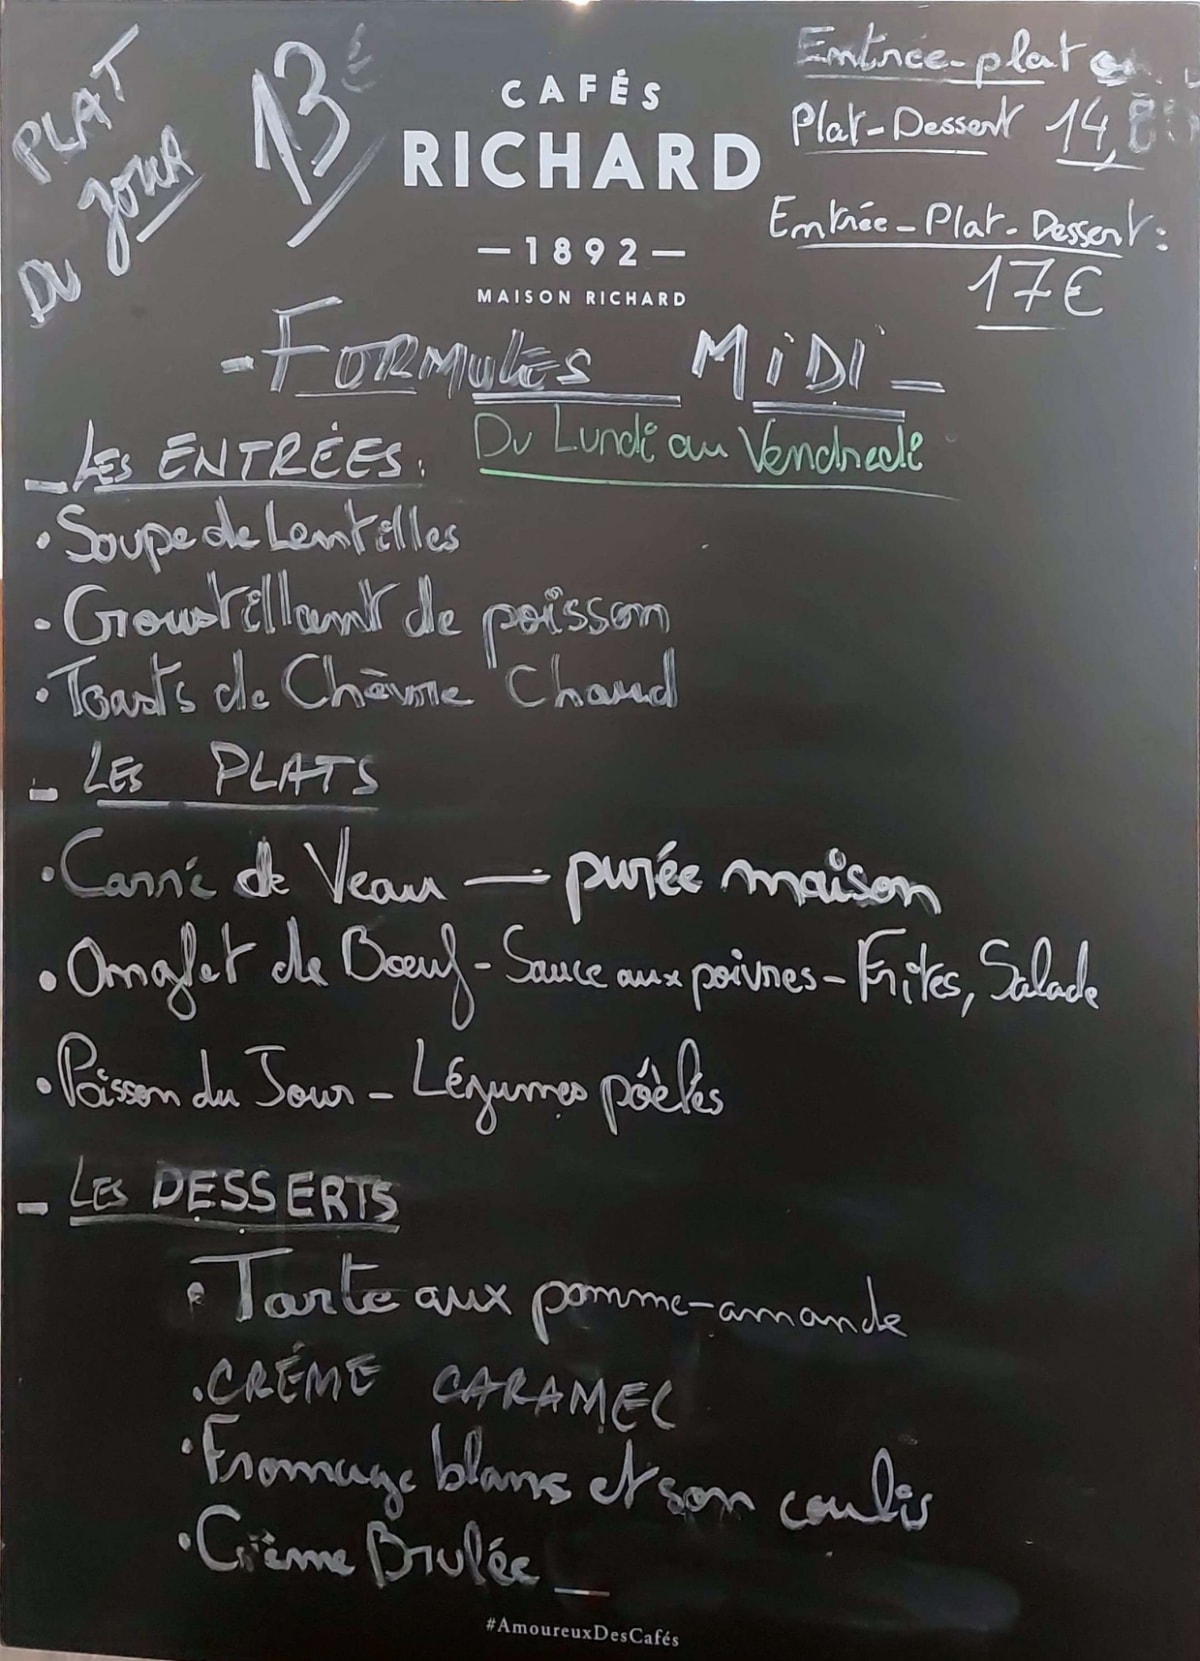 PLAT
DU JOUR
13€
CAFÉS
RICHARD
—1892—
MAISON RICHARD
Entrée-plat
Plat-Dessert 14,8
Entrée-Plat-Dessert:
17€
-FORMULES MiDi-
Du Lundi au Vendredi
-LES ENTRÉES:
•Soupe de Lentilles
•Croustillant de poisson
•Toasts de Chèvre Chaud
-LES PLATS
•Carré de Veau — purée maison
•Onglet de Bœuf-Sauce aux poivres-Frites, Salade
•Poisson du Jour-Légumes póèlés
-LES DESSERTS
•Tarte aux pomme-amande
•CRÉME CARAMEL
•Fromage blanc et son coulis
•Crème Brulée
#AmoureuxDesCafés